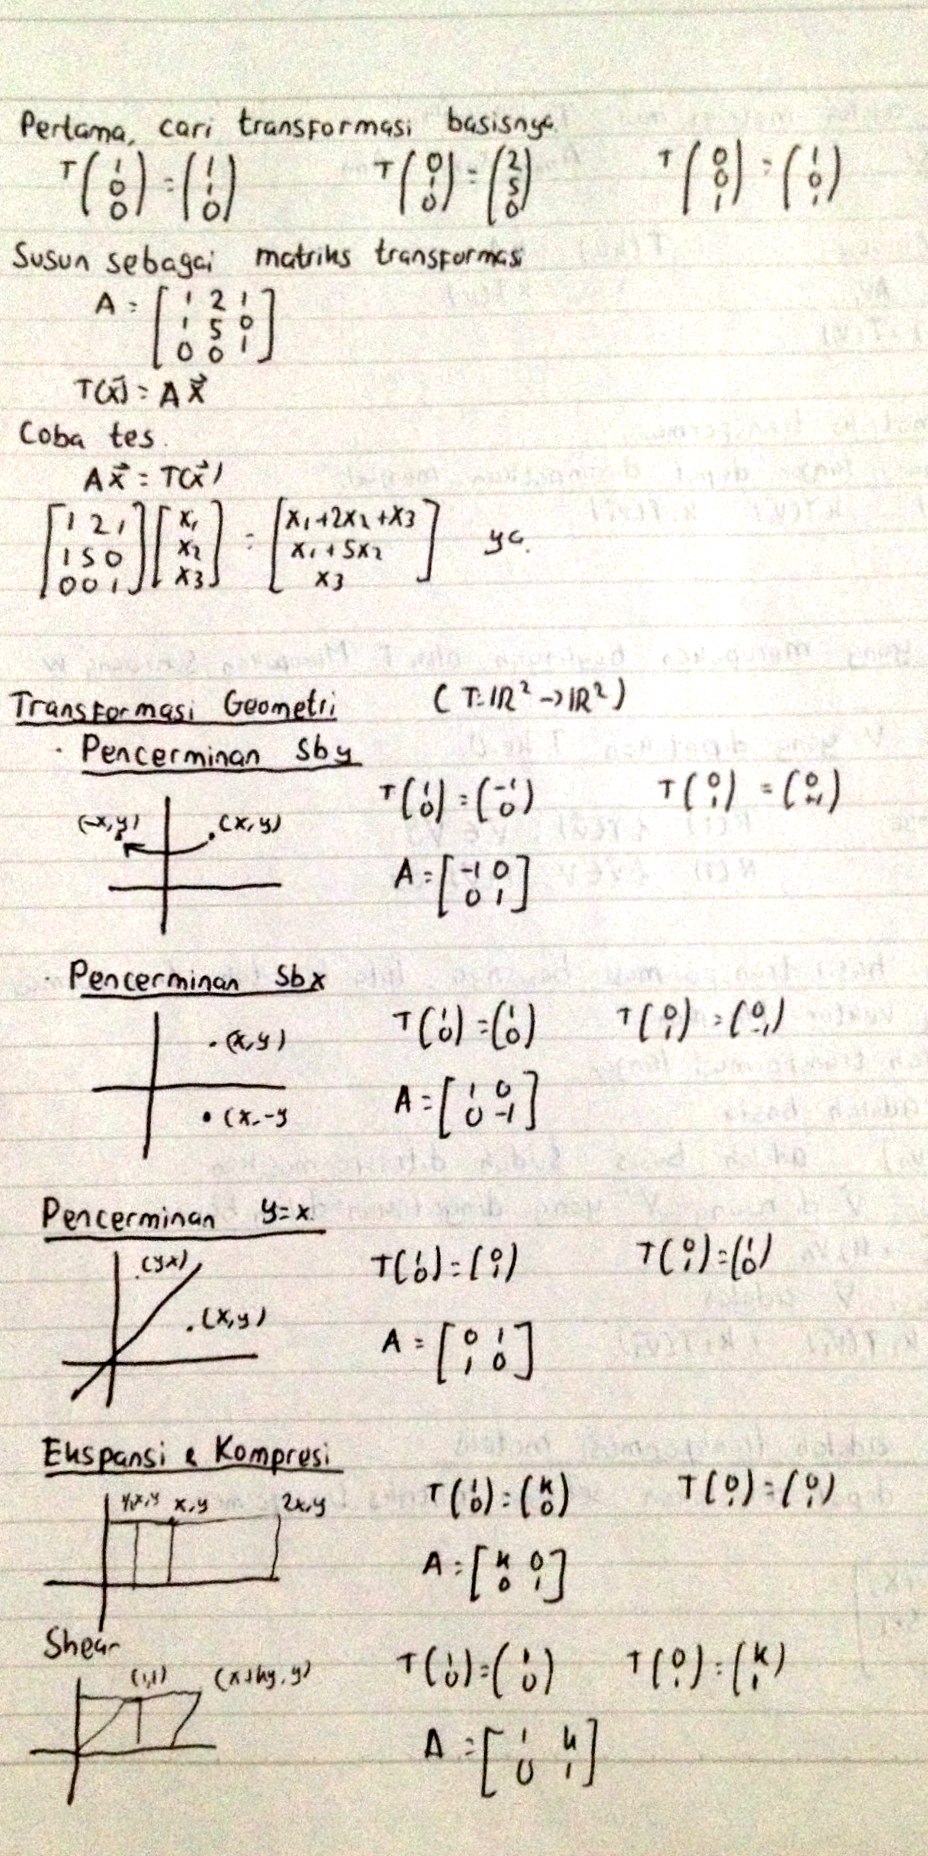 Pertama, cari transformasi basisnya.
T(1 0 0) = (1 1 0) T(0 1 0) = (2 5 0) T(0 0 1) = (1 0 1)
Susun sebagai matriks transformasi
A = [1 2 1
1 5 0
0 0 1]
T(x⃗) = A x⃗
Coba tes.
A x⃗ = T(x⃗)
[1 2 1 [x₁ = [x₁+2x₂+x₃
1 5 0 x₂ x₁+5x₂ ya.
0 0 1] x₃] x₃]
Transformasi Geometri (T=ℝ² → ℝ²)
· Pencerminan Sby
T(1 0) = (-1 0) T(0 1) = (0 +1)
(-x,y) (x,y)
A = [-1 0
0 1]
· Pencerminan Sbx
T(1 0) = (1 0) T(0 1) = (0 -1)
(x,y)
A = [1 0
0 -1]
(x,-y
Pencerminan y=x.
(yx) T(1 0) = (0 1) T(0 1) = (1 0)
(x,y)
A = [0 1
1 0]
Ekspansi & Kompresi
x,y 2x,y T(1 0) = (k 0) T(0 1) = (0 1)
A = [k 0
0 1]
Shear
(1,1) (x+ky,y) T(1 0) = (1 0) T(0 1) = (k 1)
A = [1 k
0 1]